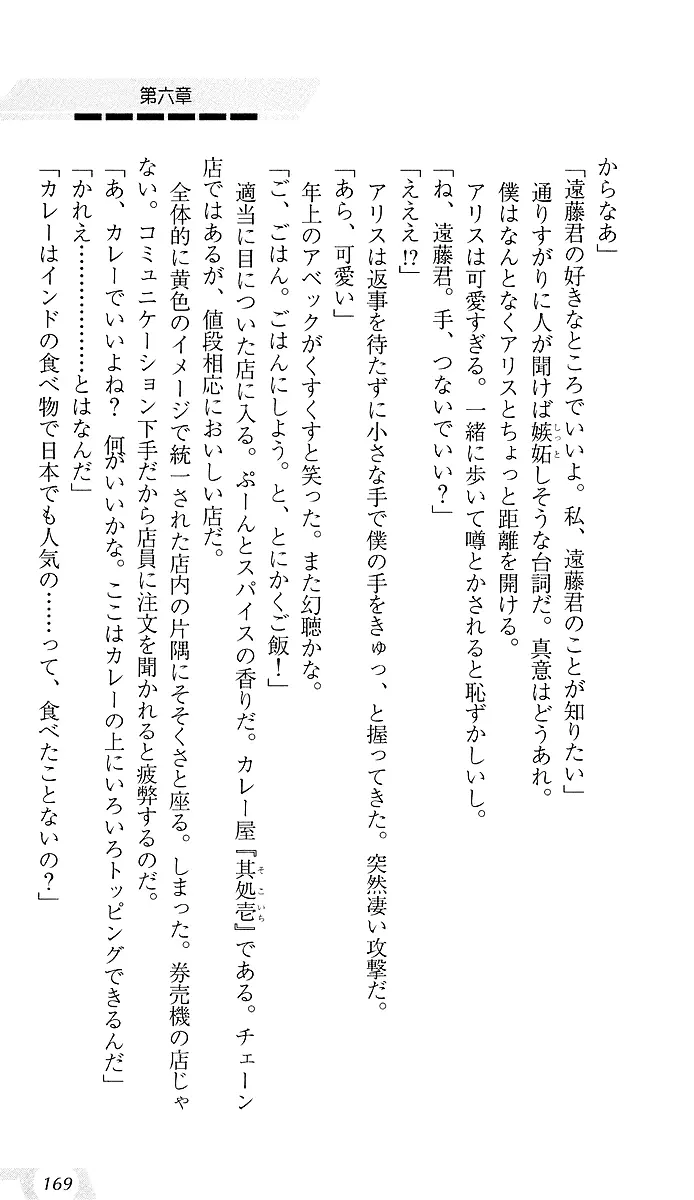 第六章
からなあ」
「遠藤君の好きなところでいいよ。私、遠藤君のことが知りたい」
通りすがりに人が聞けば嫉妬しそうな台詞だ。真意はどうあれ。
しっと
僕はなんとなくアリスとちょっと距離を開ける。
アリスは可愛すぎる。一緒に歩いて噂とかされると恥ずかしいし。
「ね、遠藤君。手、つないでいい？」
「えええ!?」
アリスは返事を待たずに小さな手で僕の手をきゅっ、と握ってきた。突然凄い攻撃だ。
「あら、可愛い」
年上のアベックがくすくすと笑った。また幻聴かな。
「ご、ごはん。ごはんにしよう。と、とにかくご飯！」
適当に目についた店に入る。ぷーんとスパイスの香りだ。カレー屋『其処壱』である。チェーン
そこいち
店ではあるが、値段相応においしい店だ。
全体的に黄色のイメージで統一された店内の片隅にそそくさと座る。しまった。券売機の店じゃ
ない。コミュニケーション下手だから店員に注文を聞かれると疲弊するのだ。
「あ、カレーでいいよね？　何がいいかな。ここはカレーの上にいろいろトッピングできるんだ」
「かれえ………………とはなんだ」
「カレーはインドの食べ物で日本でも人気の……って、食べたことないの？」
169